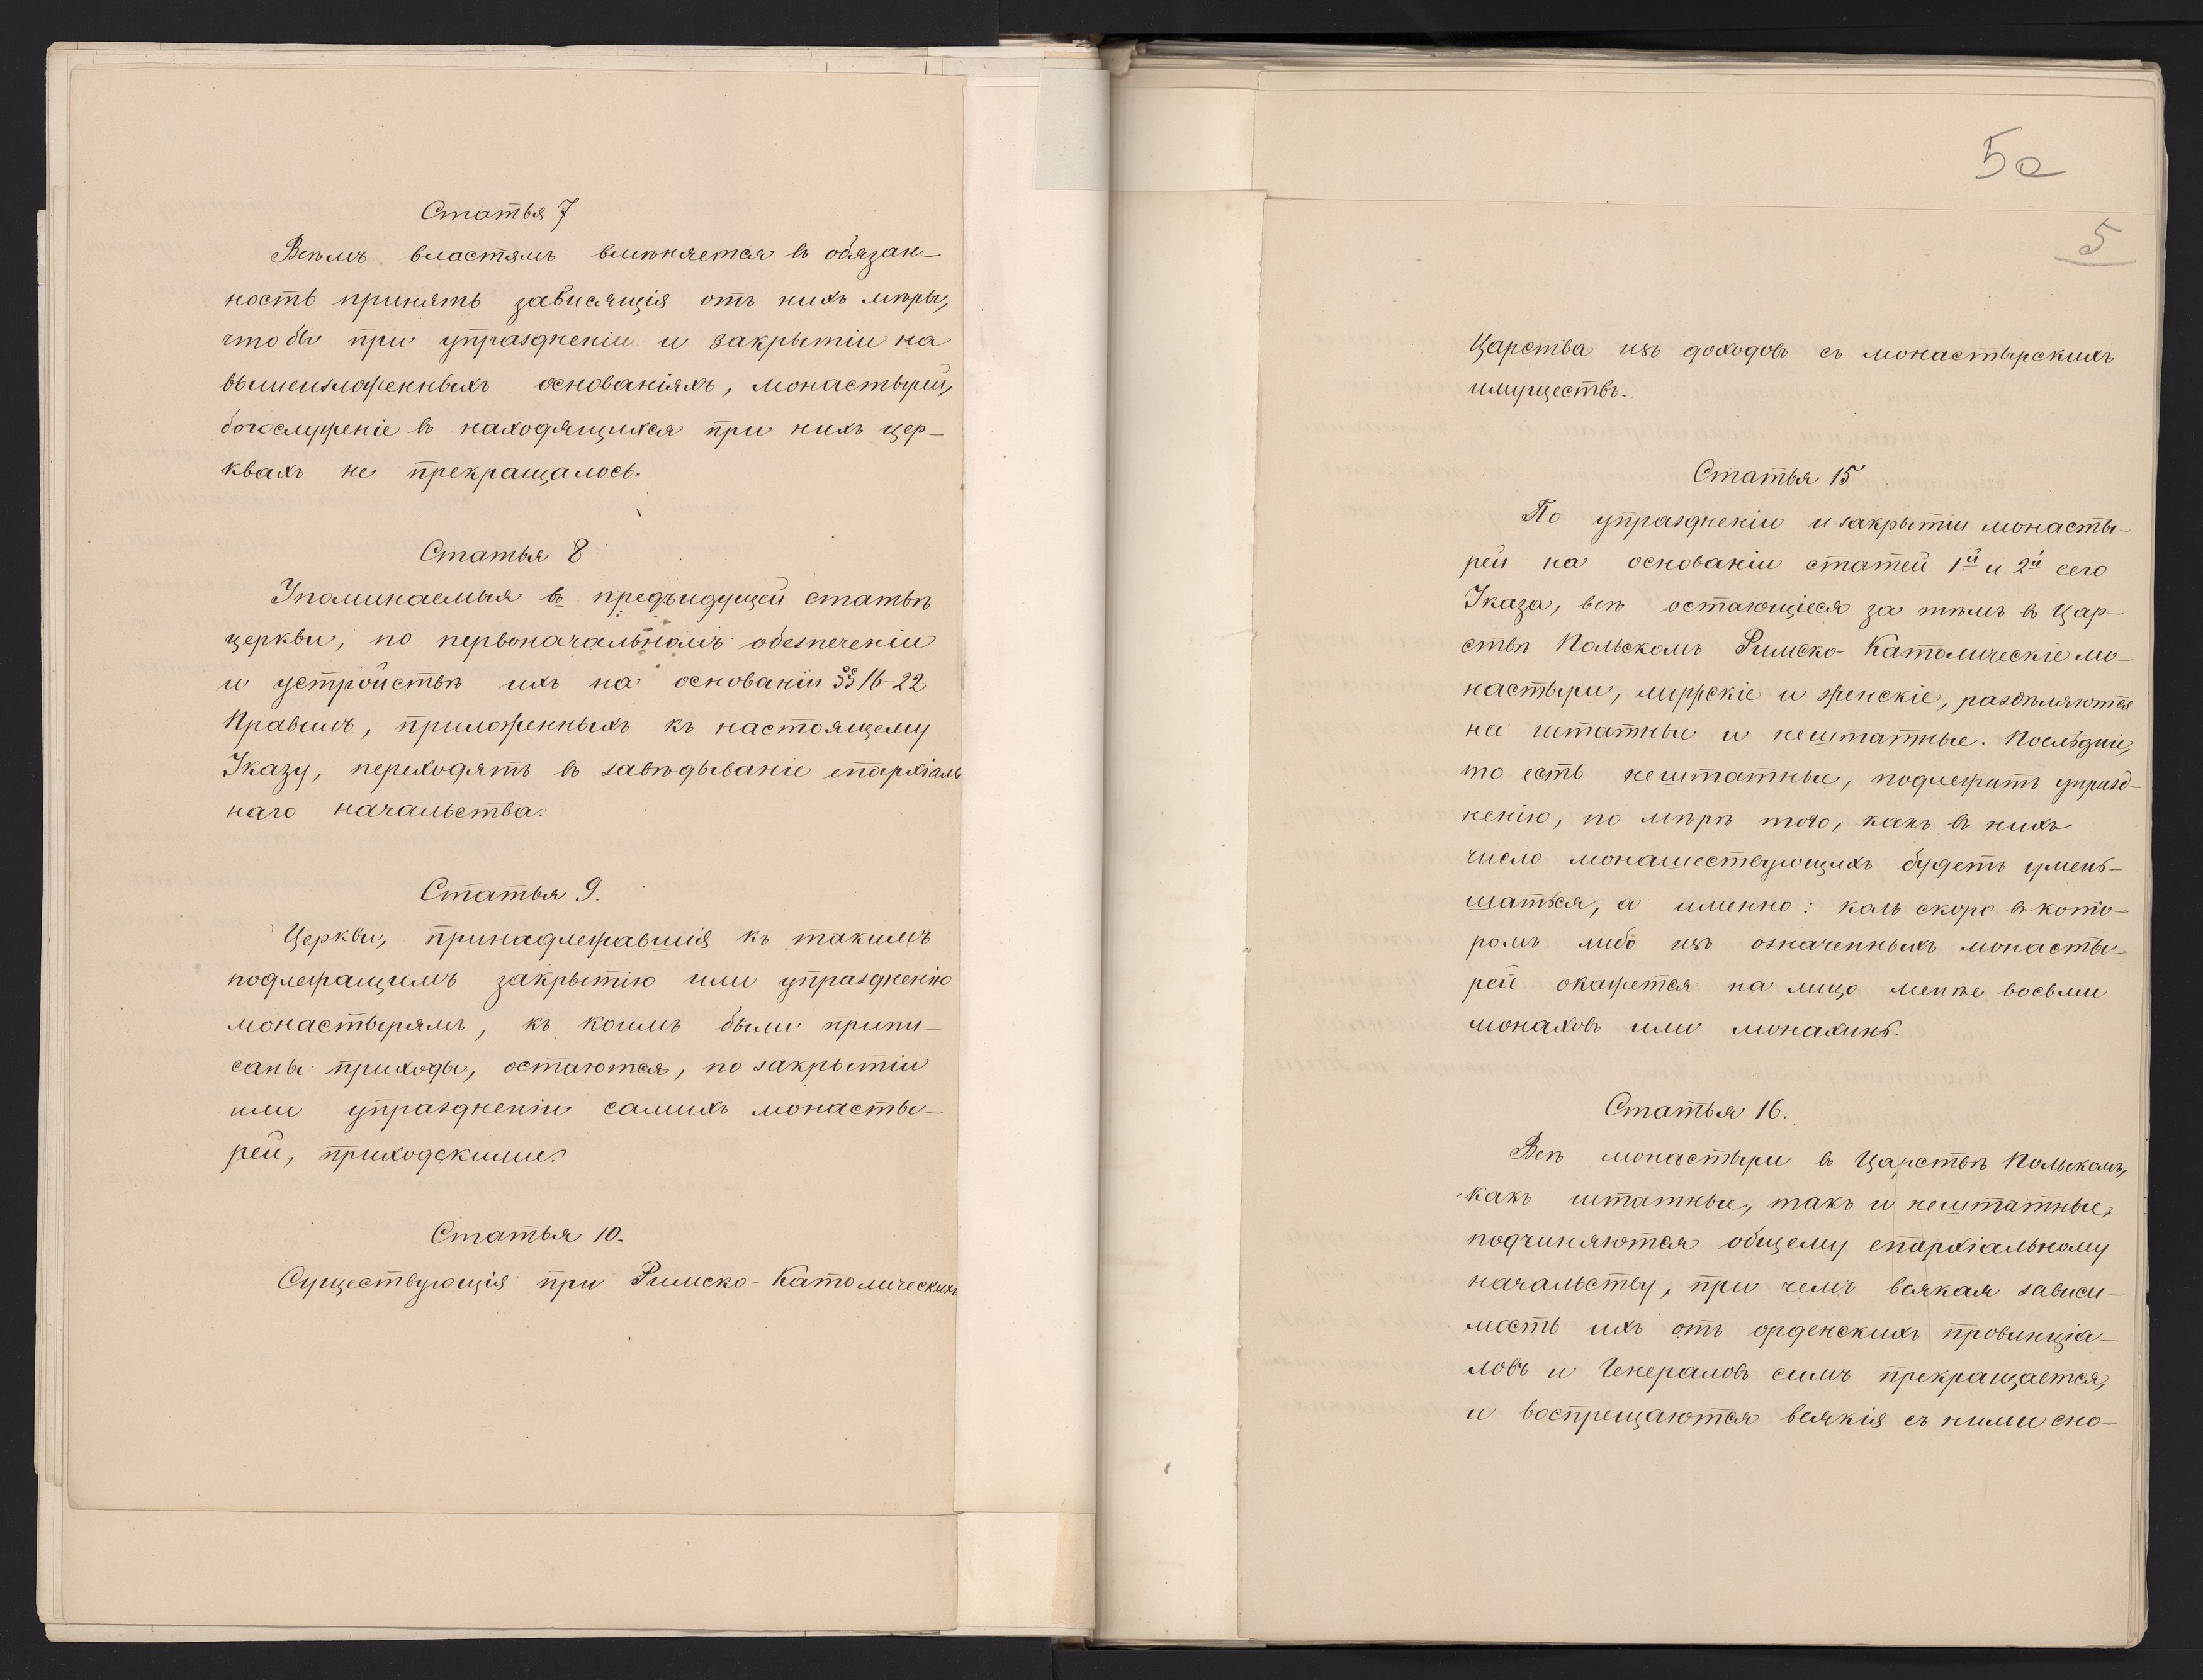 Статья 7
Всѣмъ властямъ вмѣняется въ обязан-
ность принять зависящія отъ нихъ мѣры,
чтобы при упраздненіи и закрытіи на
вышеизложенныхъ основаніяхъ, монастырей,
богослуженіе въ находящихся при нихъ цер-
квахъ не прекращалось.
Статья 8
Упоминаемыя въ предъидущей статьѣ
церкви, по первоначальномъ обезпеченіи
и устройствѣ ихъ на основаніи §§ 16-22
Правилъ, приложенныхъ къ настоящему
Указу, переходятъ въ завѣдываніе епархіаль
наго начальства.
Статья 9.
Церкви, принадлежавшія къ такимъ
подлежащимъ закрытію или упраздненію
монастырямъ, къ коимъ были припи-
саны приходы, остаются, по закрытіи
или упраздненіи самихъ монасты-
рей, приходскими.
Статья 10.
Существующія при Римско-Католическихъ
5a
5
Царства изъ доходовъ съ монастырскихъ
имуществъ.
Статья 15
По упраздненіи и закрытіи монасты-
рей на основаніи статей 1й и 2й сего
Указа, всѣ остающіеся за тѣмъ въ Цар-
ствѣ Польскомъ Римско-Католическіе мо-
настыри, мужскіе и женскіе, раздѣляются
на штатные и нештатные. Послѣдніе,
то есть нештатные, подлежатъ упразд-
ненію, по мѣрѣ того, какъ въ нихъ
число монашествующихъ будетъ умень-
шаться, а именно: каль скоро въ кото-
ромъ либо изъ означенныхъ монасты-
рей окажется на лицо менѣе восьми
монаховъ или монахинь.
Статья 16.
Всѣ монастыри въ Царствѣ Польскомъ,
какъ штатные, такъ и нештатные,
подчиняются общему епархіальному
начальству; при чемъ всякая зависи-
мость ихъ отъ орденскихъ провинціа-
ловъ и Генераловъ симъ прекращается,
и воспрещаются всякія съ ними сно-